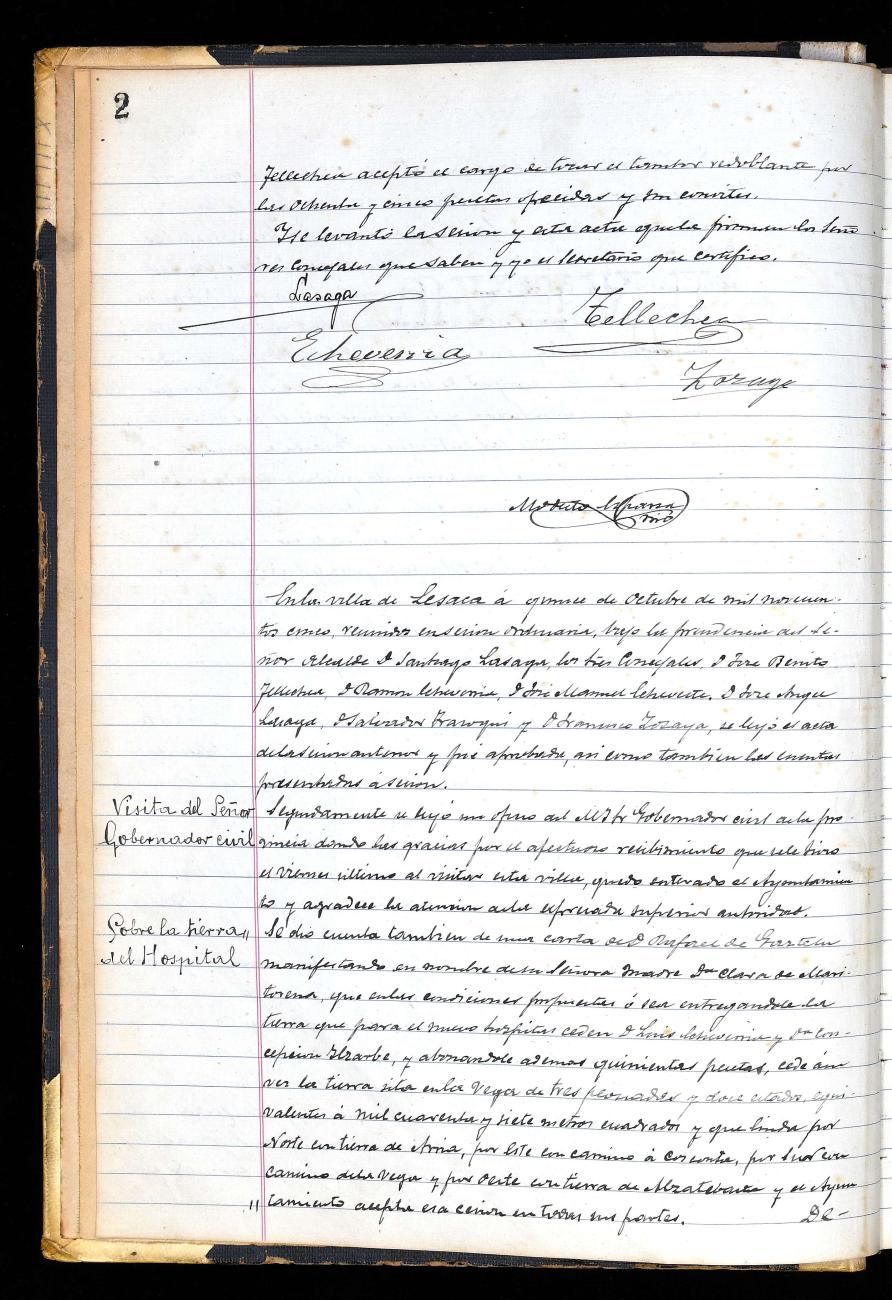 2
Tellechea aceptó el cargo de tocar el tambor redoblante por
las ochenta y cinco pesetas ofrecidas y sin convites.
Y se levantó la sesion y esta acta que la firman los Seño
res concejales que saben y yo el Secretario que certifico.
Lasaga
Tellechea
Echeverria
Zozaya
Modesto Esparza
En la villa de Lesaca á quince de Octubre de mil novecien-
tos cinco, reunidos en sesion ordinaria, bajo la presidencia del Se-
ñor Alcalde D Santiago Lasaga, los tres Concejales, D Jose Benito
Tellechea, D Ramon Echeverria, D José Manuel Echeveste, D Jose Angel
Lasaga, D Salvador y D Francisco Zozaya, se leyó el acta
de la sesion anterior y fué aprobada, asi como tambien las cuentas
presentadas á sesion.
Visita del Señor
Gobernador civil
Seguidamente se leyó un oficio del M I Sr Gobernador civil de la pro-
vincia dando las gracias por el afectuoso recibimiento que se le hizo
el viernes último al visitar esta villa, quedo enterado el Ayuntamien
to y agradece la atencion de la espresada superior autoridad.
Sobre la tierra
del Hospital
Se dio cuenta tambien de una carta de D Rafael de Gaztelu
manifestando en nombre de su Señora madre Dª Clara de Mari
torena, que en las condiciones propuestas ó sea entregandole la
tierra que para el nuevo hospital ceden D Luis Echeverria y Dª Con-
cepcion Ilzarbe, y abonandole ademas quinientas pesetas, cede
la tierra sita en la Vega de tres peonadas y doce estados, equi-
valentes á mil cuarenta y siete metros cuadrados y que linda por
Norte con tierra de , por Este con camino á , por Sud con
camino de la Vega y por Oeste con tierra de y el Ayun
tamiento acepta esa cesion en todas sus partes. De-